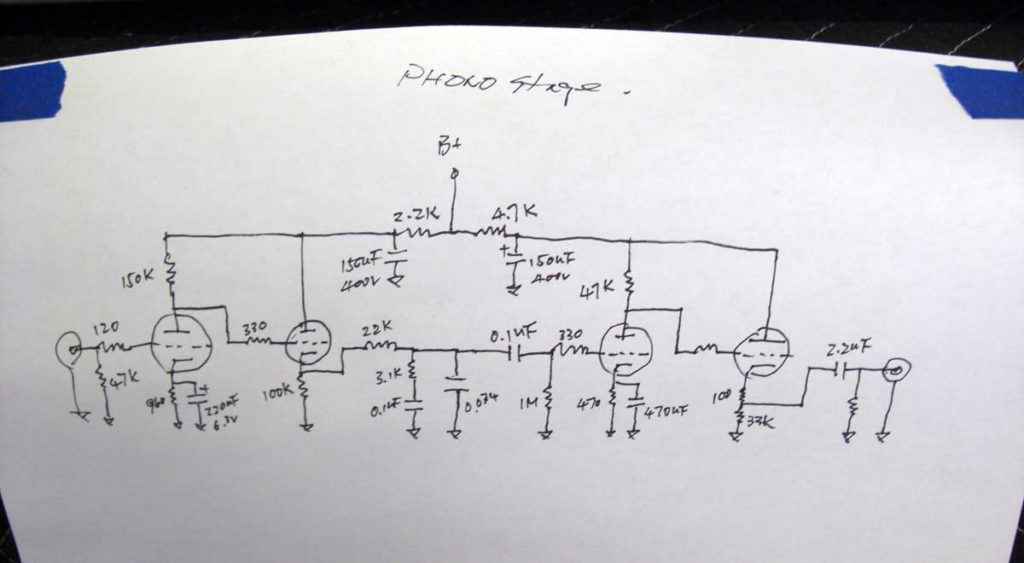 PHONO Stage.
B+
2.2K
4.7K
150uF
400V
+
150uF
400V
150K
47K
120
330
22K
0.1uF
330
2.2uF
47K
+
220uF
6.3V
100K
3.1K
0.1uF
1M
470
470uF
100
33K